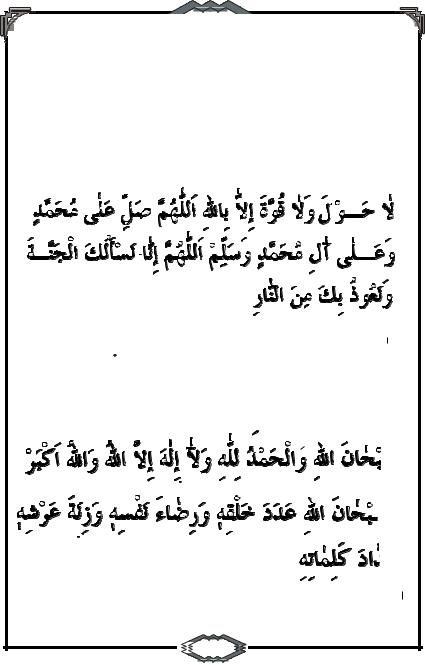 لَا حَـــوْلَ وَلَا قُوَّةَ إِلاَّ بِاللهِ اَللّٰهُمَّ صَلِّ عَلٰى مُحَمَّدٍ
وَعَـــلٰى اٰلِ مُحَمَّدٍ وَسَلِّمْ اَللّٰهُمَّ إِنَّا نَسْأَلُكَ الْجَنَّـــةَ
وَنَعُوْذُ بِكَ مِنَ النَّارِ
بْحَانَ اللهِ وَالْحَمْدُ لِلّٰهِ وَلَا إِلٰهَ إِلاَّ اللهُ وَاللهُ اَكْبَرْ
بْحَانَ اللهِ عَدَدَ خَلْقِهٖ وَرِضَاءَ نَفْسِهٖ وَزِنَةَ عَرْشِهٖ
دَادَ كَلِمَاتِهِ